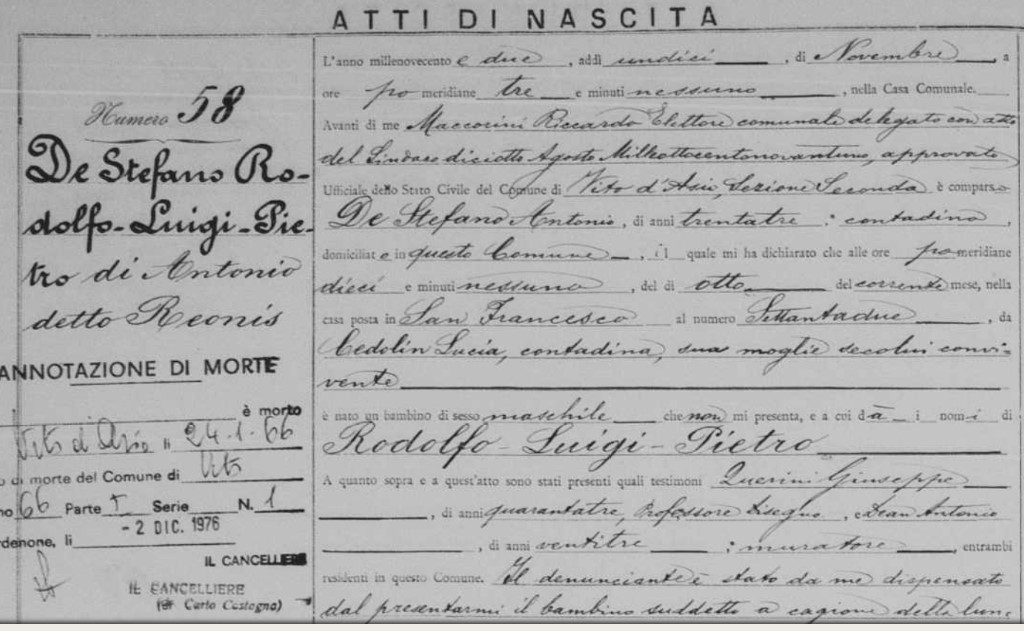 ATTI DI NASCITA
Numero 58
De Stefano Ro-
dolfo-Luigi-Pie-
tro di Antonio
detto Reonis
ANNOTAZIONE DI MORTE
è morto
Vito d'Asio il 24-1-66
di morte del Comune di Vito
66 Parte I Serie N. 1
rdenone, li - 2 DIC. 1976
IL CANCELLIERE
IL CANCELLIERE
(dr Carlo Castagna)
L'anno millenovecento e due, addì undici, di Novembre, a
ore pomeridiane tre e minuti nessuno, nella Casa Comunale.
Avanti di me Maccorini Riccardo Elettore comunale delegato con atto
del Sindaco diciotto Agosto Milleottocentonovantuno, approvato
Ufficiale dello Stato Civile del Comune di Vito d'Asio, Sezione Seconda è comparso
De Stefano Antonio, di anni trentatre; contadino,
domiciliato in questo Comune, il quale mi ha dichiarato che alle ore pomeridiane
dieci e minuti nessuno, del dì otto del corrente mese, nella
casa posta in San Francesco al numero Settantadue, da
Cedolin Lucia, contadina, sua moglie secolui convi-
vente
è nato un bambino di sesso maschile che non mi presenta, e a cui dà i nomi di
Rodolfo-Luigi-Pietro
A quanto sopra e a quest'atto sono stati presenti quali testimoni Querini Giuseppe
, di anni quarantatre, Professore disegno, e Dean Antonio
, di anni ventitre; muratore, entrambi
residenti in questo Comune. Il denunciante è stato da me dispensato
dal presentarmi il bambino suddetto a cagione della lun-